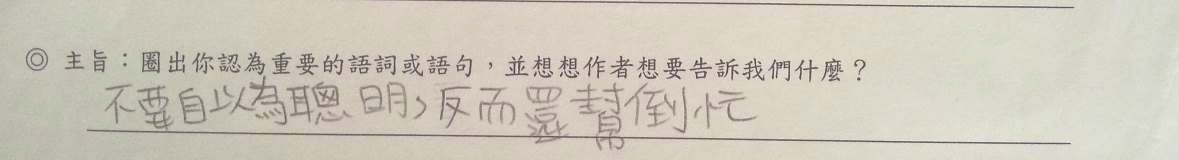 ◎ 主旨：圈出你認為重要的語詞或語句，並想想作者想要告訴我們什麼？
不要自以為聰明，反而還幫倒忙